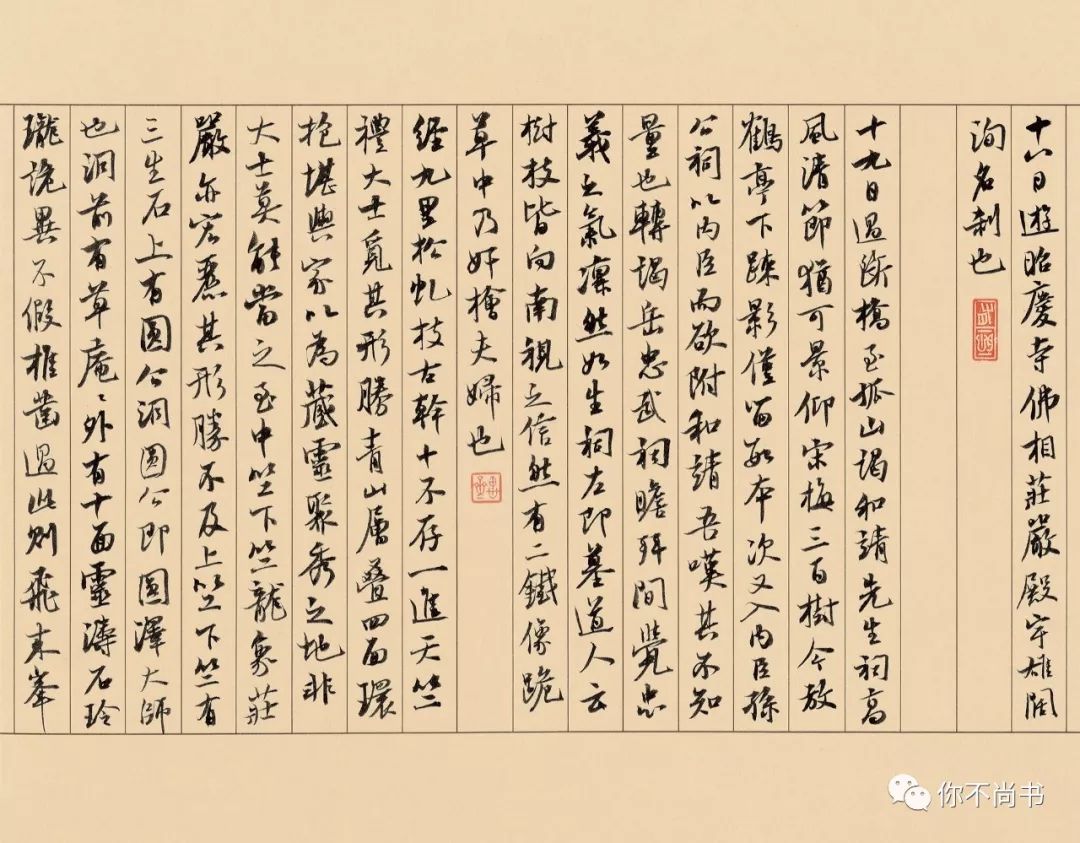 十八日遊昭慶寺佛相莊嚴殿宇雄闊
洵名刹也
十九日過斷橋至孤山謁和靖先生祠高
風清節猶可景仰宋梅三百樹今放
鶴亭下疎影僅留數本次又入內臣孫
公祠以內臣而欲附和靖吾嘆其不知
量也轉謁岳忠武祠瞻拜間覺忠
義之氣凜然如生祠左即墓道人云
樹枝皆向南視之信然有二鐵像跪
草中乃奸檜夫婦也
經九里松虬枝古幹十不存一進天竺
禮大士覓其形勝青山層疊四面環
抱堪輿家以為藏靈聚秀之地非
大士莫能當之至中竺下竺龍象莊
嚴亦宏麗其形勝不及上竺下竺有
三生石上有圓公洞圓公即圓澤大師
也洞前有草庵〻外有十面靈濤石玲
瓏詭異不假椎過此則飛來峯
你不尚书